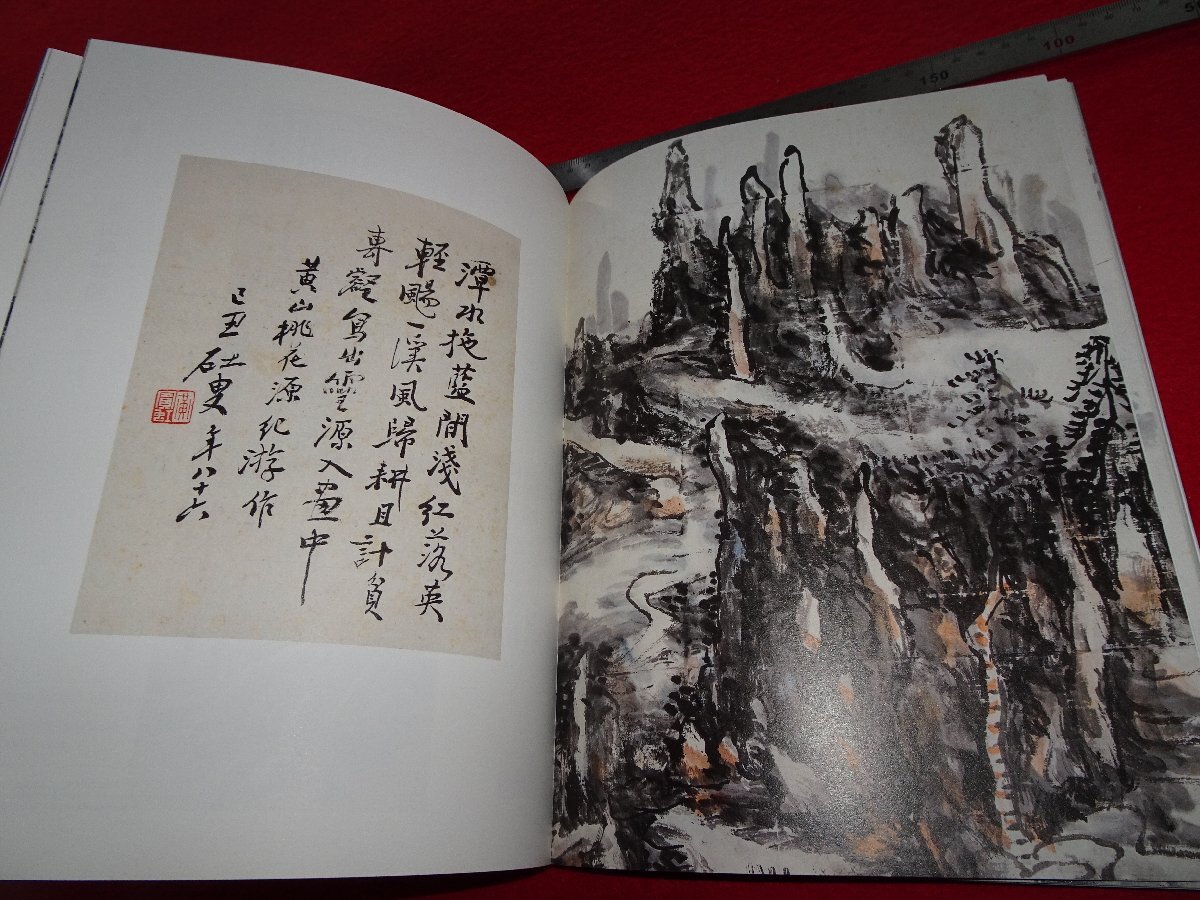 潭水拖藍間淺紅落英
輕颺一溪風歸耕且計負
專壑寫出靈源入畫中
黃山桃花源紀游作
己丑 叟年八十六
150
100